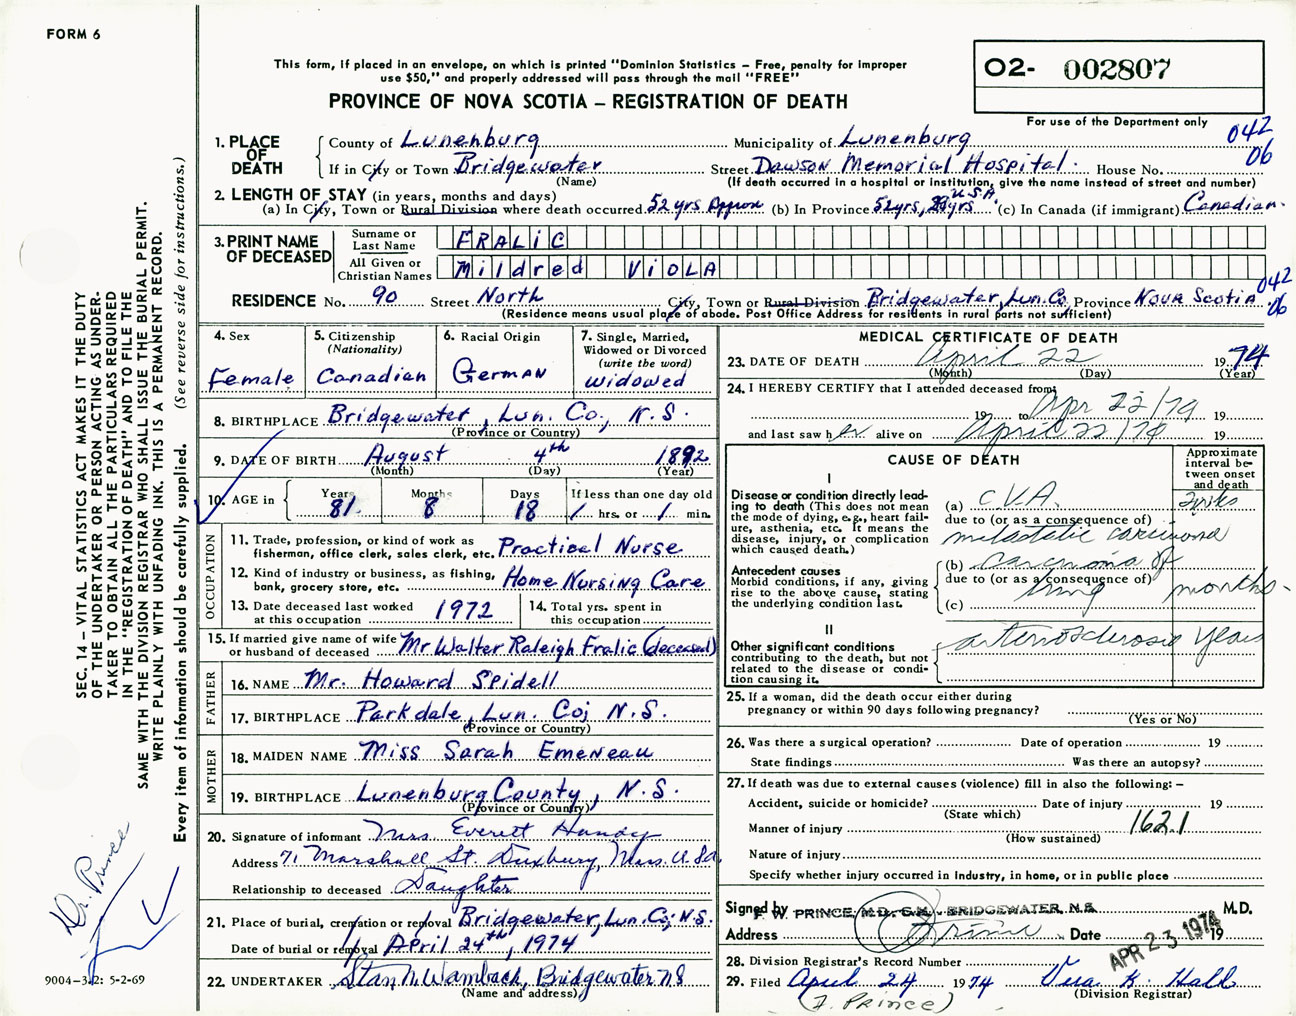 FORM 6
This form, if placed in an envelope, on which is printed "Dominion Statistics – Free, penalty for improper
use $50," and properly addressed will pass through the mail "FREE"
PROVINCE OF NOVA SCOTIA – REGISTRATION OF DEATH
02- 002807
For use of the Department only
042
06
1. PLACE OF DEATH
County of Lunenburg Municipality of Lunenburg
If in City or Town Bridgewater Street Dawson Memorial Hospital. House No.
(Name) (If death occurred in a hospital or institution, give the name instead of street and number)
2. LENGTH OF STAY (in years, months and days) U.S.A
(a) In City, Town or Rural Division where death occurred 52 yrs Approx (b) In Province 52 yrs, yrs (c) In Canada (if immigrant) Canadian.
3. PRINT NAME OF DECEASED
Surname or Last Name FRALIC
All Given or Christian Names Mildred VIOLA
042
06
RESIDENCE No. 90 Street North City, Town or Rural Division Bridgewater, Lun. Co. Province Nova Scotia
(Residence means usual place of abode. Post Office Address for residents in rural parts not sufficient)
4. Sex
Female
5. Citizenship
(Nationality)
Canadian
6. Racial Origin
German
7. Single, Married,
Widowed or Divorced
(write the word)
widowed
8. BIRTHPLACE Bridgewater, Lun. Co., N.S.
(Province or Country)
9. DATE OF BIRTH August 4th 1892
(Month) (Day) (Year)
10. AGE in
Years Months Days If less than one day old
81 8 18 / hrs. or / min.
OCCUPATION
11. Trade, profession, or kind of work as
fisherman, office clerk, sales clerk, etc. Practical Nurse
12. Kind of industry or business, as fishing,
bank, grocery store, etc. Home Nursing Care
13. Date deceased last worked
at this occupation 1972
14. Total yrs. spent in
this occupation
15. If married give name of wife
or husband of deceased Mr Walter Raleigh Fralic (deceased)
FATHER
16. NAME Mr. Howard Spidell
17. BIRTHPLACE Parkdale, Lun. Co; N.S.
(Province or Country)
MOTHER
18. MAIDEN NAME Miss Sarah Emeneau
19. BIRTHPLACE Lunenburg County, N.S.
(Province or Country)
20. Signature of informant Mrs. Everett Handy
Address 71 Marshall St. Duxbury, Mass. U.S.A.
Relationship to deceased Daughter
21. Place of burial, cremation or removal Bridgewater, Lun. Co; N.S.
Date of burial or removal April 24th, 1974
22. UNDERTAKER Stan N Wambach, Bridgewater NS
(Name and address)
MEDICAL CERTIFICATE OF DEATH
23. DATE OF DEATH April 22 1974
(Month) (Day) (Year)
24. I HEREBY CERTIFY that I attended deceased from
19 to Apr 22/74 19
and last saw her alive on April 22/74 19
CAUSE OF DEATH
Approximate
interval be-
tween onset
and death
I
Disease or condition directly lead-
ing to death (This does not mean
the mode of dying, e.g., heart fail-
ure, asthenia, etc. It means the
disease, injury, or complication
which caused death.)
(a) C.V.A.
due to (or as a consequence of)
metastatic carcinoma
Antecedent causes
Morbid conditions, if any, giving
rise to the above cause, stating
the underlying condition last.
(b) carcinoma of
due to (or as a consequence of)
lung months
(c)
II
Other significant conditions
contributing to the death, but not
related to the disease or condi-
tion causing it.
arteriosclerosis years
25. If a woman, did the death occur either during
pregnancy or within 90 days following pregnancy?
(Yes or No)
26. Was there a surgical operation? Date of operation 19
State findings Was there an autopsy?
27. If death was due to external causes (violence) fill in also the following: –
Accident, suicide or homicide? Date of injury 19
(State which)
Manner of injury 162.1
(How sustained)
Nature of injury
Specify whether injury occurred in Industry, in home, or in public place
Signed by F. W. PRINCE, M.D., C.M. - BRIDGEWATER, N.S. M.D.
Address Prince Date APR 23 1974 19
28. Division Registrar's Record Number
29. Filed April 24 1974 Vera K. Hall
(Division Registrar)
(F. PRINCE)
SEC. 14 – VITAL STATISTICS ACT MAKES IT THE DUTY
OF THE UNDERTAKER OR PERSON ACTING AS UNDER-
TAKER TO OBTAIN ALL THE PARTICULARS REQUIRED
IN THE "REGISTRATION OF DEATH" AND TO FILE THE
SAME WITH THE DIVISION REGISTRAR WHO SHALL ISSUE THE BURIAL PERMIT.
WRITE PLAINLY WITH UNFADING INK. THIS IS A PERMANENT RECORD.
Every item of Information should be carefully supplied. (See reverse side for instructions.)
Dr. Prince
9004-3-2: 5-2-69